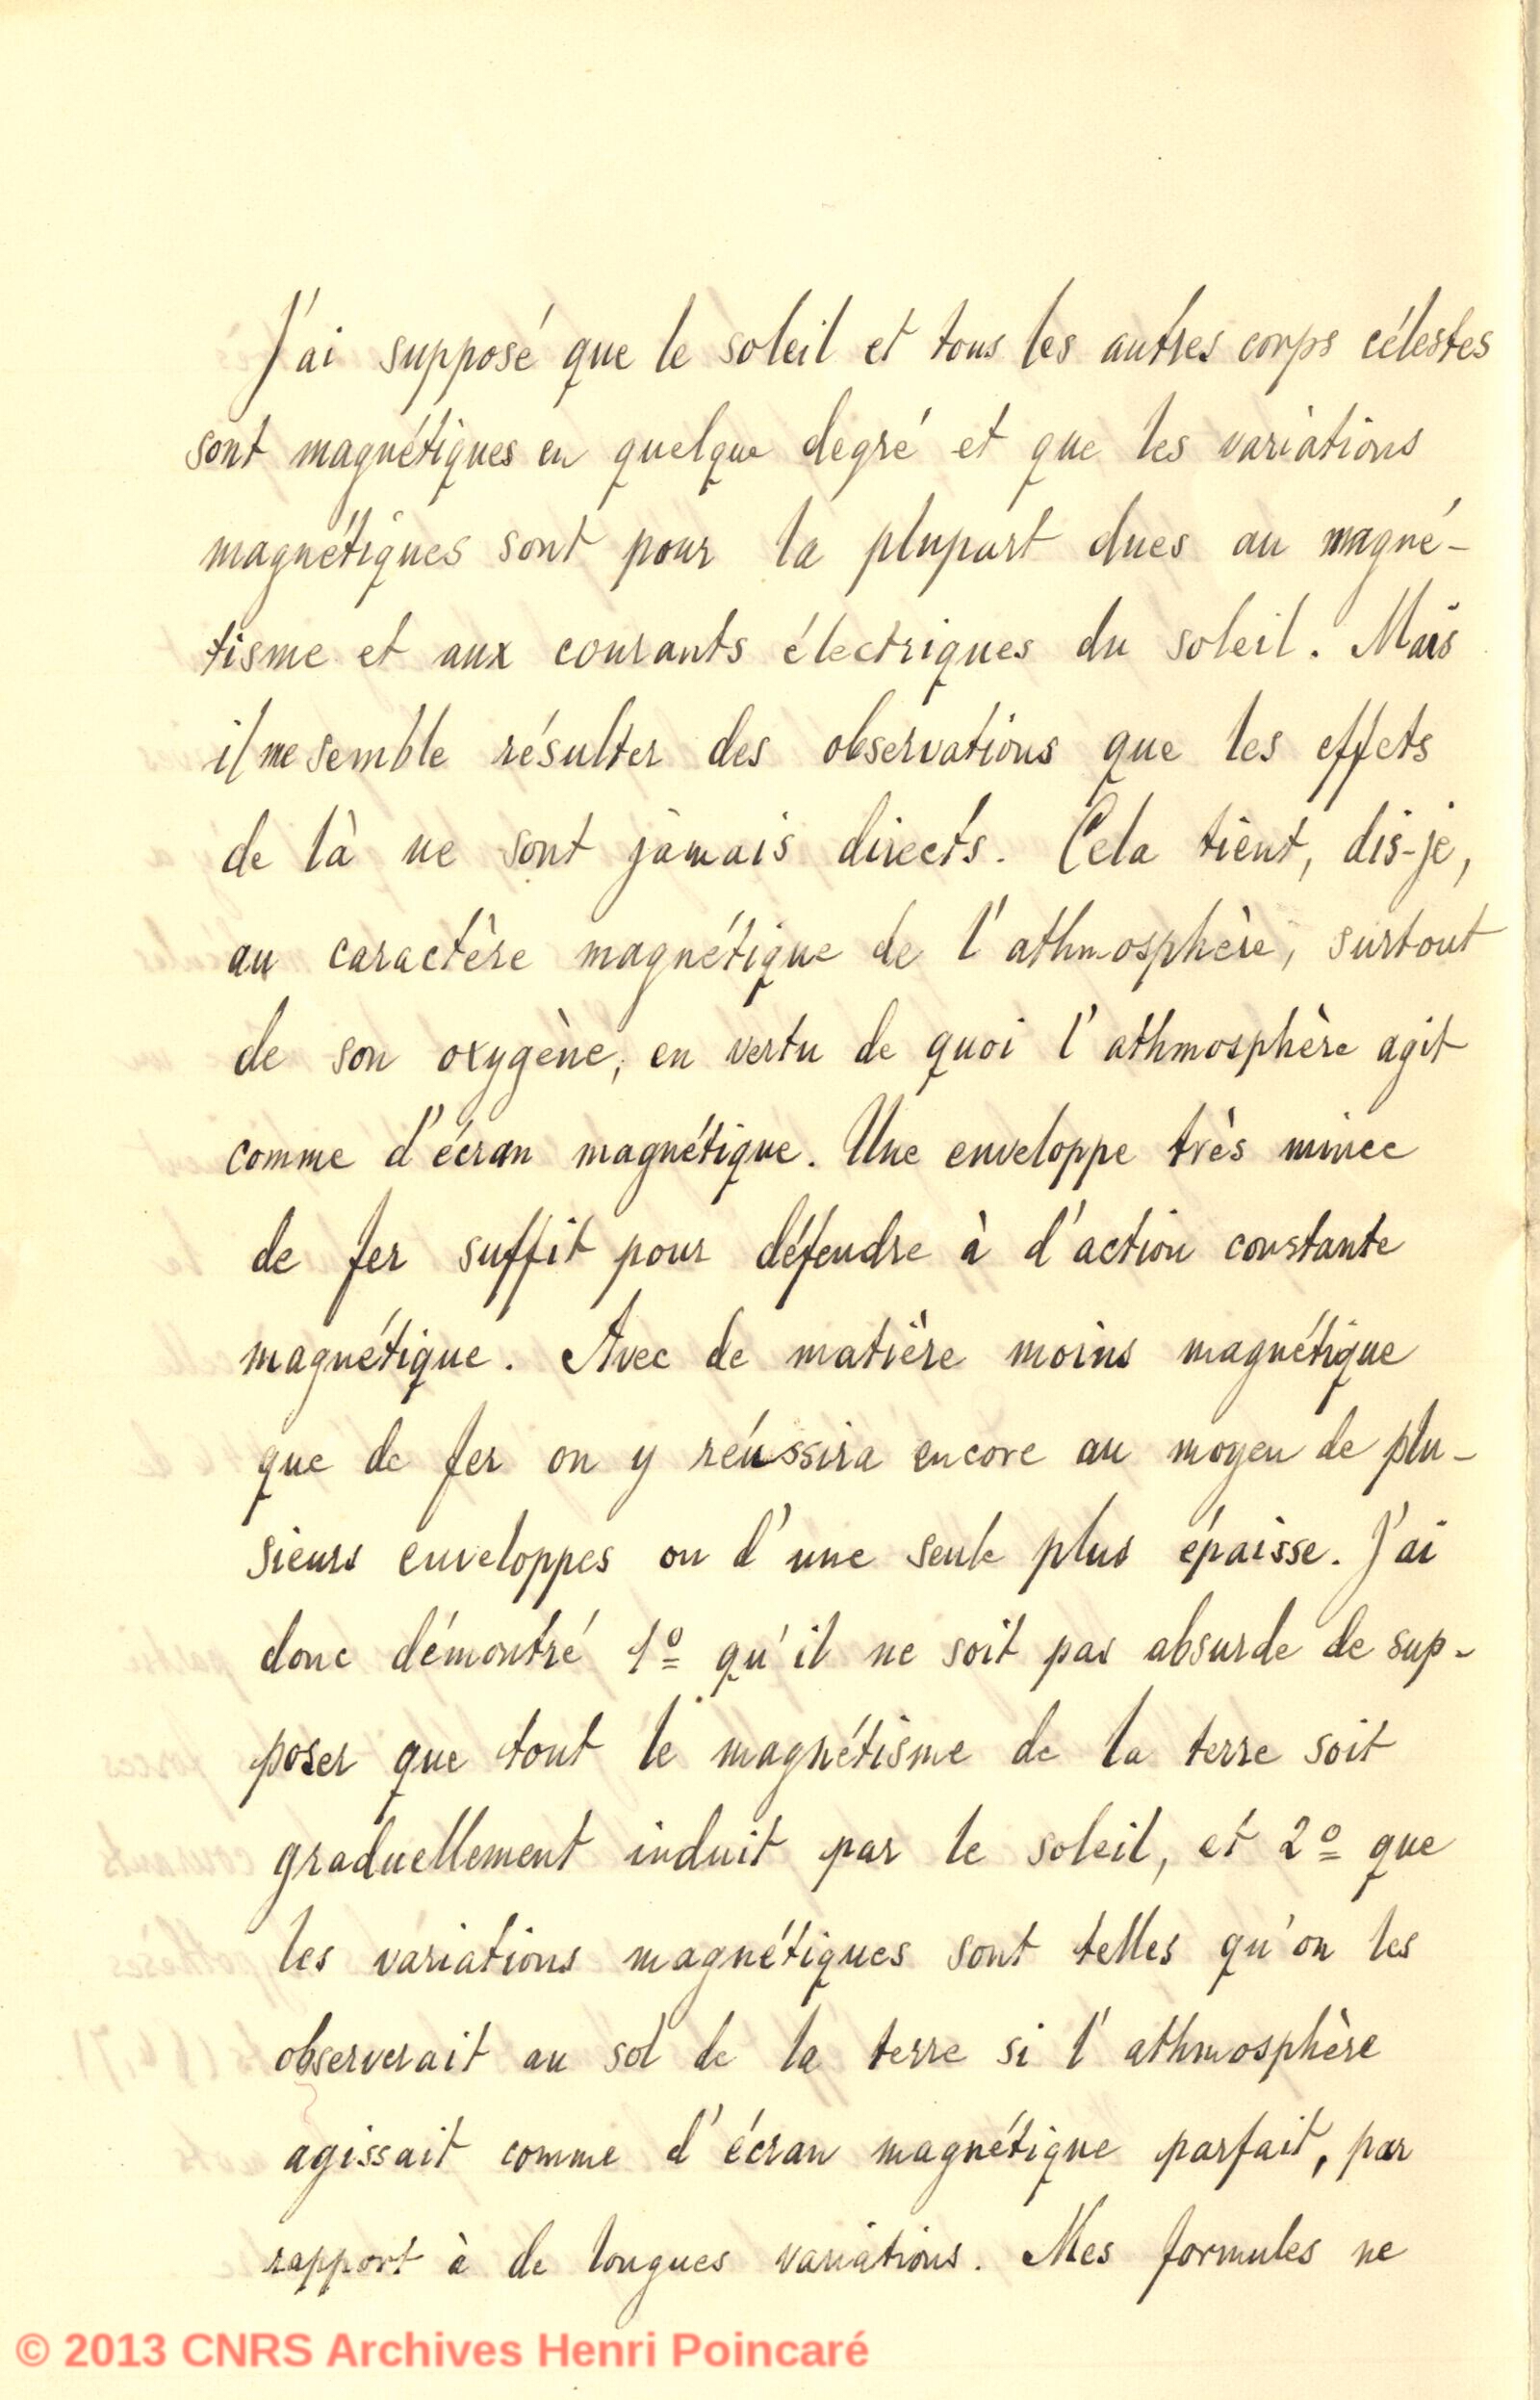 J'ai supposé que le soleil et tous les autres corps célestes
sont magnétiques en quelque degré et que les variations
magnétiques sont pour la plupart dues au magné-
tisme et aux courants électriques du soleil. Mais
il me semble résulter des observations que les effets
de là ne sont jamais directs. Cela tient, dis-je,
au caractère magnétique de l'athmosphère, surtout
de son oxygène, en vertu de quoi l'athmosphère agit
comme d'écran magnétique. Une enveloppe très mince
de fer suffit pour défendre à d'action constante
magnétique. Avec de matière moins magnétique
que de fer on y réussira encore au moyen de plu-
sieurs enveloppes ou d'une seule plus épaisse. J'ai
donc démontré 1º qu'il ne soit pas absurde de sup-
poser que tout le magnétisme de la terre soit
graduellement induit par le soleil, et 2º que
les variations magnétiques sont telles qu'on les
observerait au sol de la terre si l'athmosphère
agissait comme d'écran magnétique parfait, par
rapport à de longues variations. Mes formules ne
© 2013 CNRS Archives Henri Poincaré